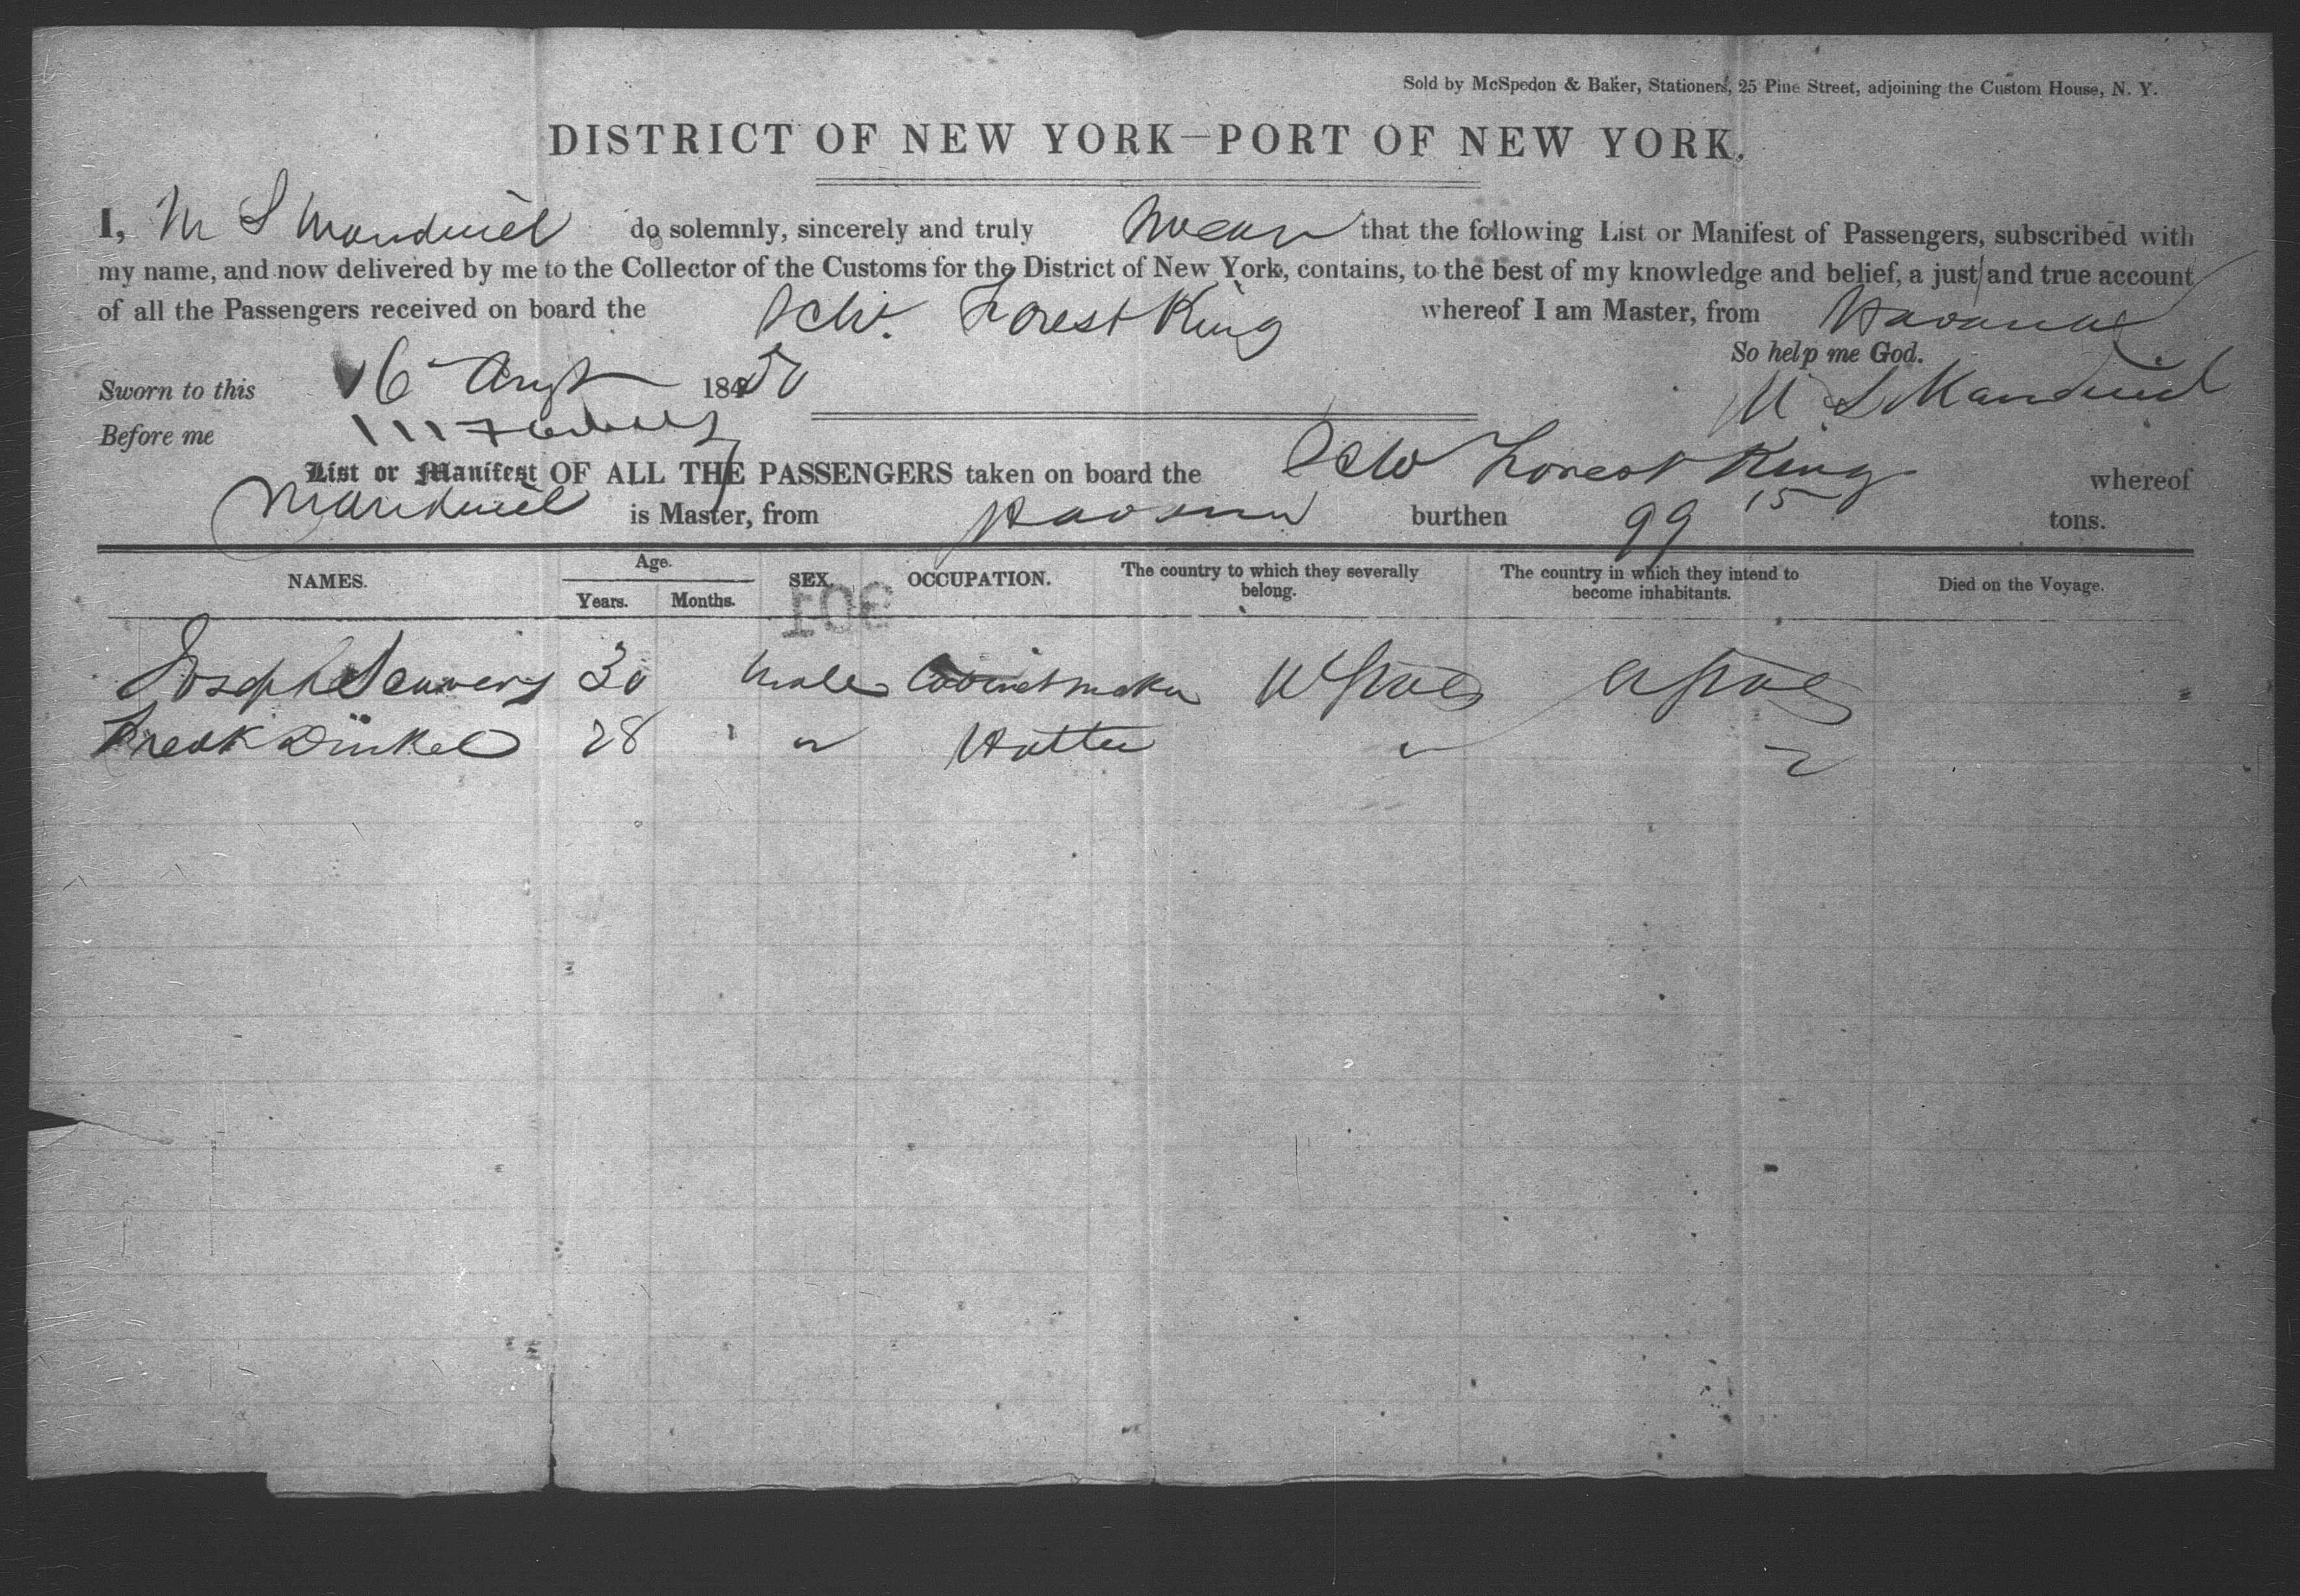 Sold by McSpedon & Baker, Stationers, 25 Pine Street, adjoining the Custom House, N. Y.
DISTRICT OF NEW YORK—PORT OF NEW YORK.
I, M S do solemnly, sincerely and truly swear that the following List or Manifest of Passengers, subscribed with
my name, and now delivered by me to the Collector of the Customs for the District of New York, contains, to the best of my knowledge and belief, a just and true account
of all the Passengers received on board the Schr. Forest King whereof I am Master, from Havana
So help me God.
Sworn to this 6 Augt 1850
Before me
List or Manifest OF ALL THE PASSENGERS taken on board the Schr Forest King whereof
is Master, from Havana burthen 99 15 tons.
NAMES. Age. Years. Months. SEX. OCCUPATION. The country to which they severally belong. The country in which they intend to become inhabitants. Died on the Voyage.
301
Joseph 30 Male Cabinetmaker U States U States
Fredk Dinkel 28 " " Hatter " "